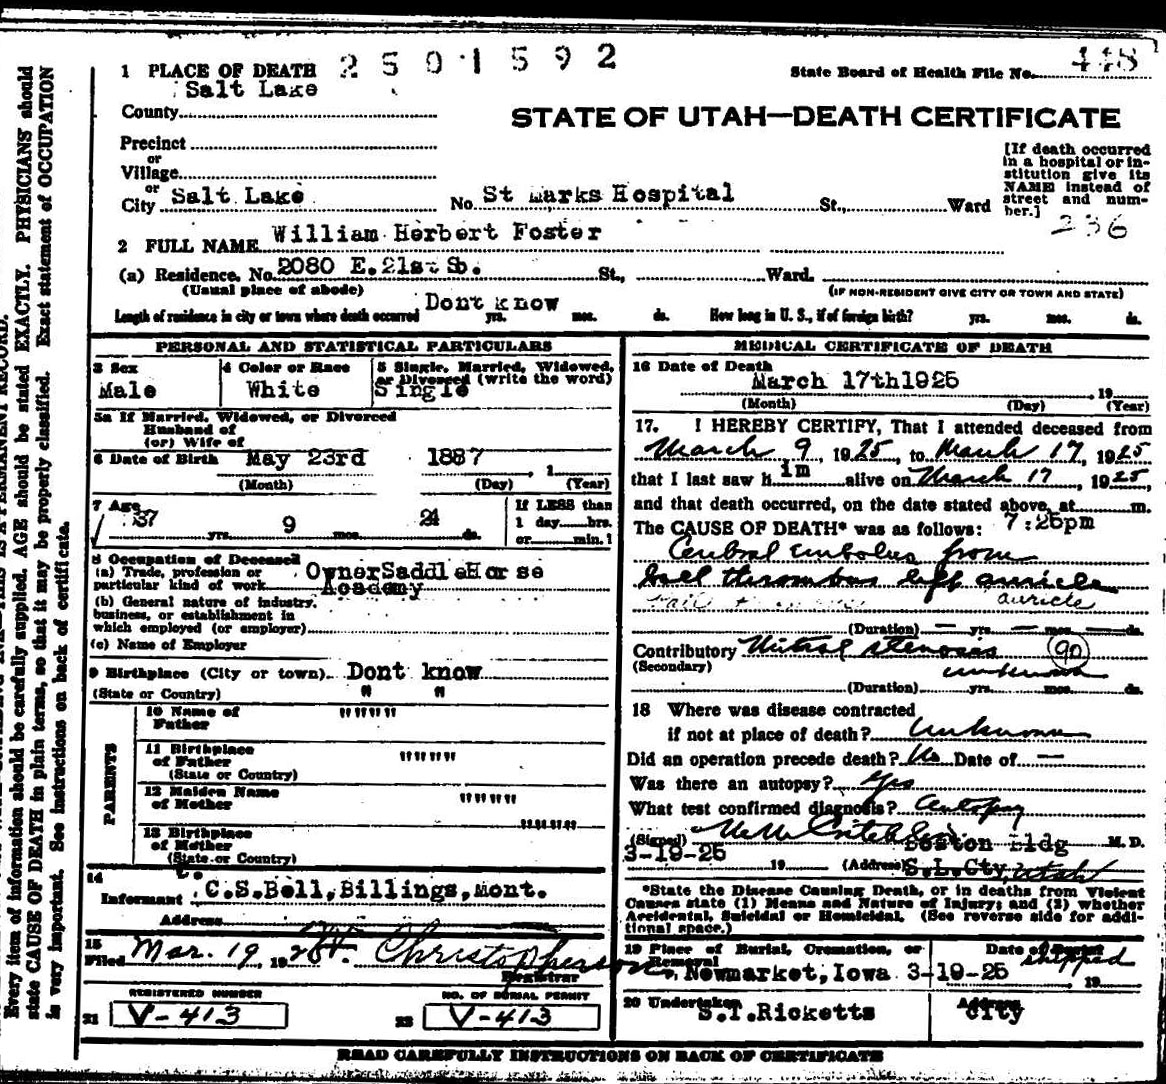 2501592
1 PLACE OF DEATH
State Board of Health File No. 448
Salt Lake
County
STATE OF UTAH—DEATH CERTIFICATE
Precinct
or
Village
or
City Salt Lake No. St Marks Hospital St., Ward
[If death occurred
in a hospital or in-
stitution give its
NAME instead of
street and num-
ber.]
236
2 FULL NAME William Herbert Foster
(a) Residence. No. 2080 E. 21st So. St., Ward.
(Usual place of abode) (IF NON-RESIDENT GIVE CITY OR TOWN AND STATE)
Length of residence in city or town where death occurred Dont know yrs. mos. ds. How long in U. S., if of foreign birth? yrs. mos. ds.
PERSONAL AND STATISTICAL PARTICULARS
3 Sex
Male
4 Color or Race
White
5 Single, Married, Widowed,
or Divorced (write the word)
Single
5a If Married, Widowed, or Divorced
Husband of
(or) Wife of
6 Date of Birth May 23rd 1887, 1
(Month) (Day) (Year)
7 Age
37 yrs. 9 mos. 24 ds.
If LESS than
1 day hrs.
or min.
8 Occupation of Deceased
(a) Trade, profession or
particular kind of work Owner Saddle Horse
Academy
(b) General nature of industry,
business, or establishment in
which employed (or employer)
(c) Name of Employer
9 Birthplace (City or town). Dont know
(State or Country) " "
PARENTS
10 Name of
Father """""
11 Birthplace
of Father """""
(State or Country)
12 Maiden Name
of Mother """""
13 Birthplace
of Mother """""
(State or Country)
14
Informant C.S.Bell, Billings, Mont.
Address
15
Filed Mar. 19, 192 Christopherson
Registrar
REGISTERED NUMBER
21 V-413
NO. OF BURIAL PERMIT
22 V-413
MEDICAL CERTIFICATE OF DEATH
16 Date of Death
March 17th1925 19
(Month) (Day) (Year)
17. I HEREBY CERTIFY, That I attended deceased from
March 9, 1925, to March 17, 1925
that I last saw h im alive on March 17, 1925,
and that death occurred, on the date stated above, at m.
The CAUSE OF DEATH* was as follows: 7:25pm
Cerebral embolus from
ball thrombus left auricle
auricle
(Duration) — yrs. — mos. — ds.
Contributory Mitral stenosis 90
(Secondary) unknown
(Duration) yrs. mos. ds.
18 Where was disease contracted
if not at place of death? Unknown
Did an operation precede death? No Date of —
Was there an autopsy? Yes
What test confirmed diagnosis? Autopsy
(Signed) M. D.
Boston Bldg
3-19-25 19 (Address) S.L.Cty, Utah
*State the Disease Causing Death, or in deaths from Violent
Causes state (1) Means and Nature of Injury; and (2) whether
Accidental, Suicidal or Homicidal. (See reverse side for addi-
tional space.)
19 Place of Burial, Cremation, or
Removal
Newmarket, Iowa
Date of Burial
shipped
3-19-25 19
20 Undertaker
S.T.Ricketts
Address
City
READ CAREFULLY INSTRUCTIONS ON BACK OF CERTIFICATE
Every item of information should be carefully supplied. AGE should be stated EXACTLY. PHYSICIANS should
state CAUSE OF DEATH in plain terms, so that it may be properly classified. Exact statement of OCCUPATION
is very important. See instructions on back of certificate.